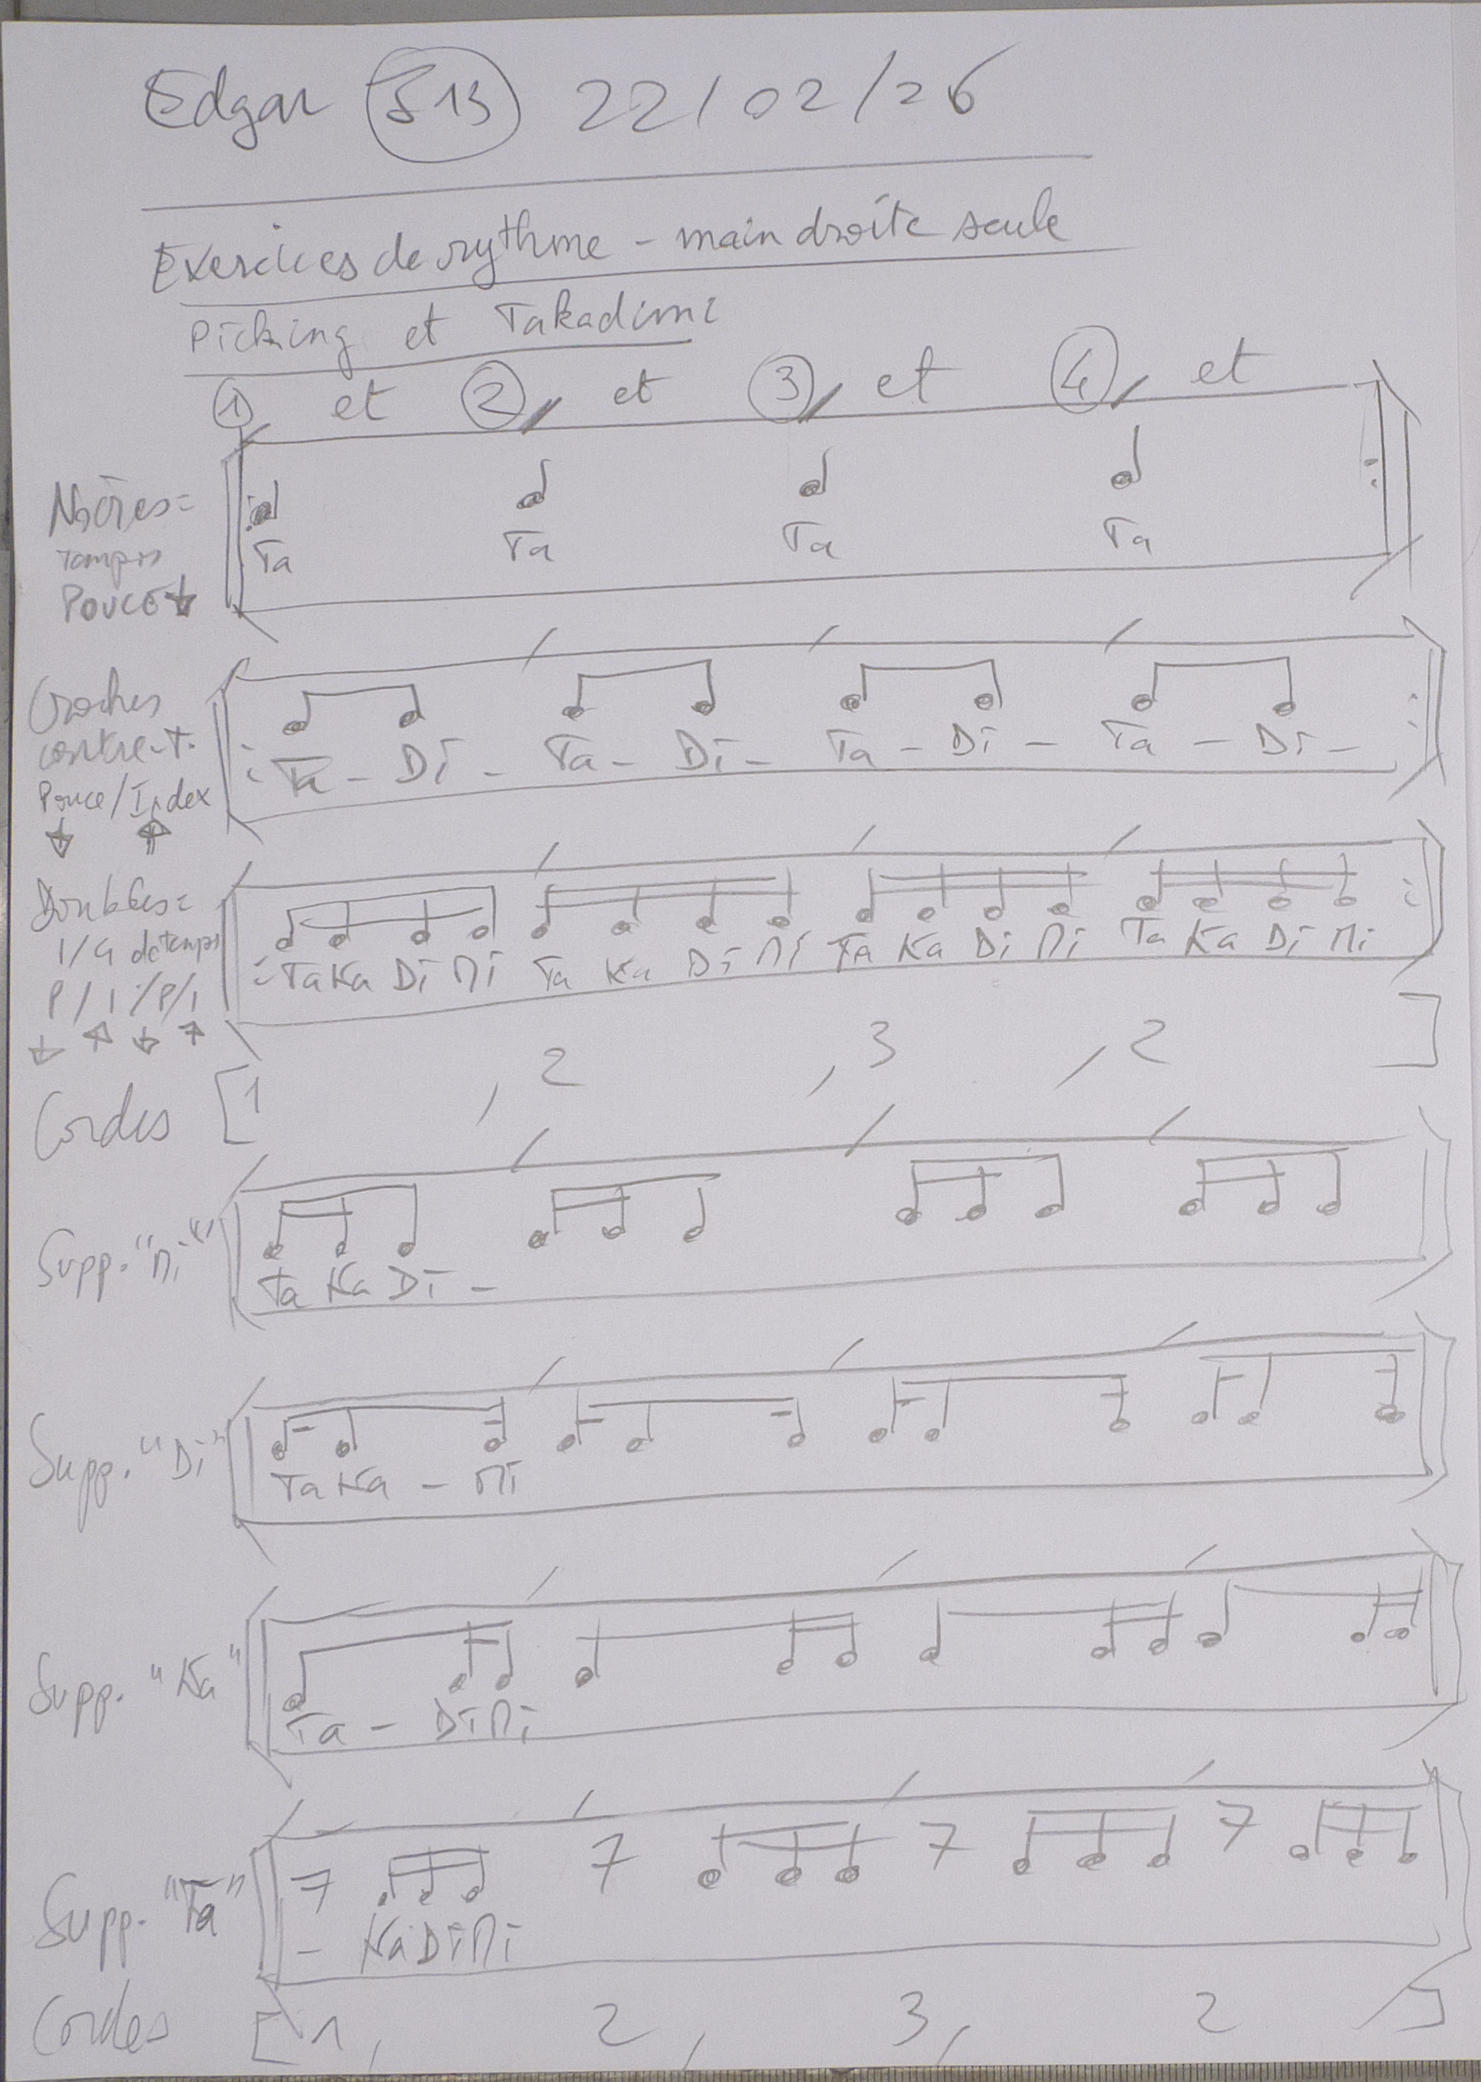 Edgar S13 22/02/26
Exercices de rythme - main droite seule
Picking et Takadimi
1 et 2 et 3 et 4 et
Noires =
temps
Pouce ↓
Ta Ta Ta Ta
Croches
contre-T.
Pouce / Index
↓ ↑
Ta - Di - Ta - Di - Ta - Di - Ta - Di -
Doubles =
1/4 de temps
P / I / P / I
↓ ↑ ↓ ↑
Ta Ka Di Mi Ta Ka Di Mi Ta Ka Di Mi Ta Ka Di Mi
Cordes [1 , 2 , 3 , 2 ]
Supp. "Mi"
Ta Ka Di -
Supp. "Di"
Ta Ka - Mi
Supp. "Ka"
Ta - Di Mi
Supp. "Ta"
- Ka Di Mi
Cordes [1, 2, 3, 2 ]